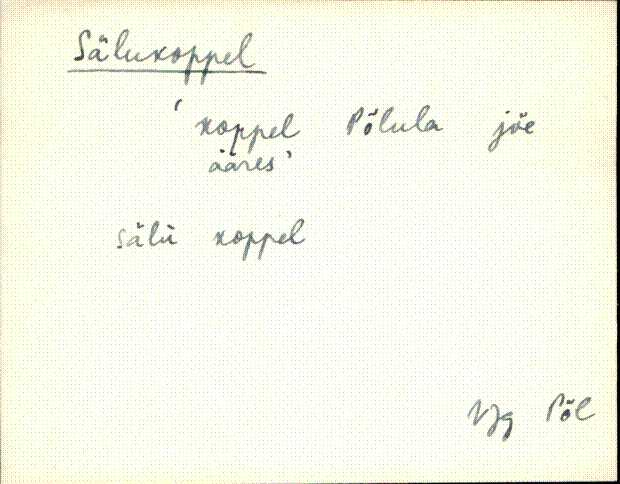 Sälukoppel
‘koppel Põlula jõe
ääres’
sälu koppel
VJg Põl